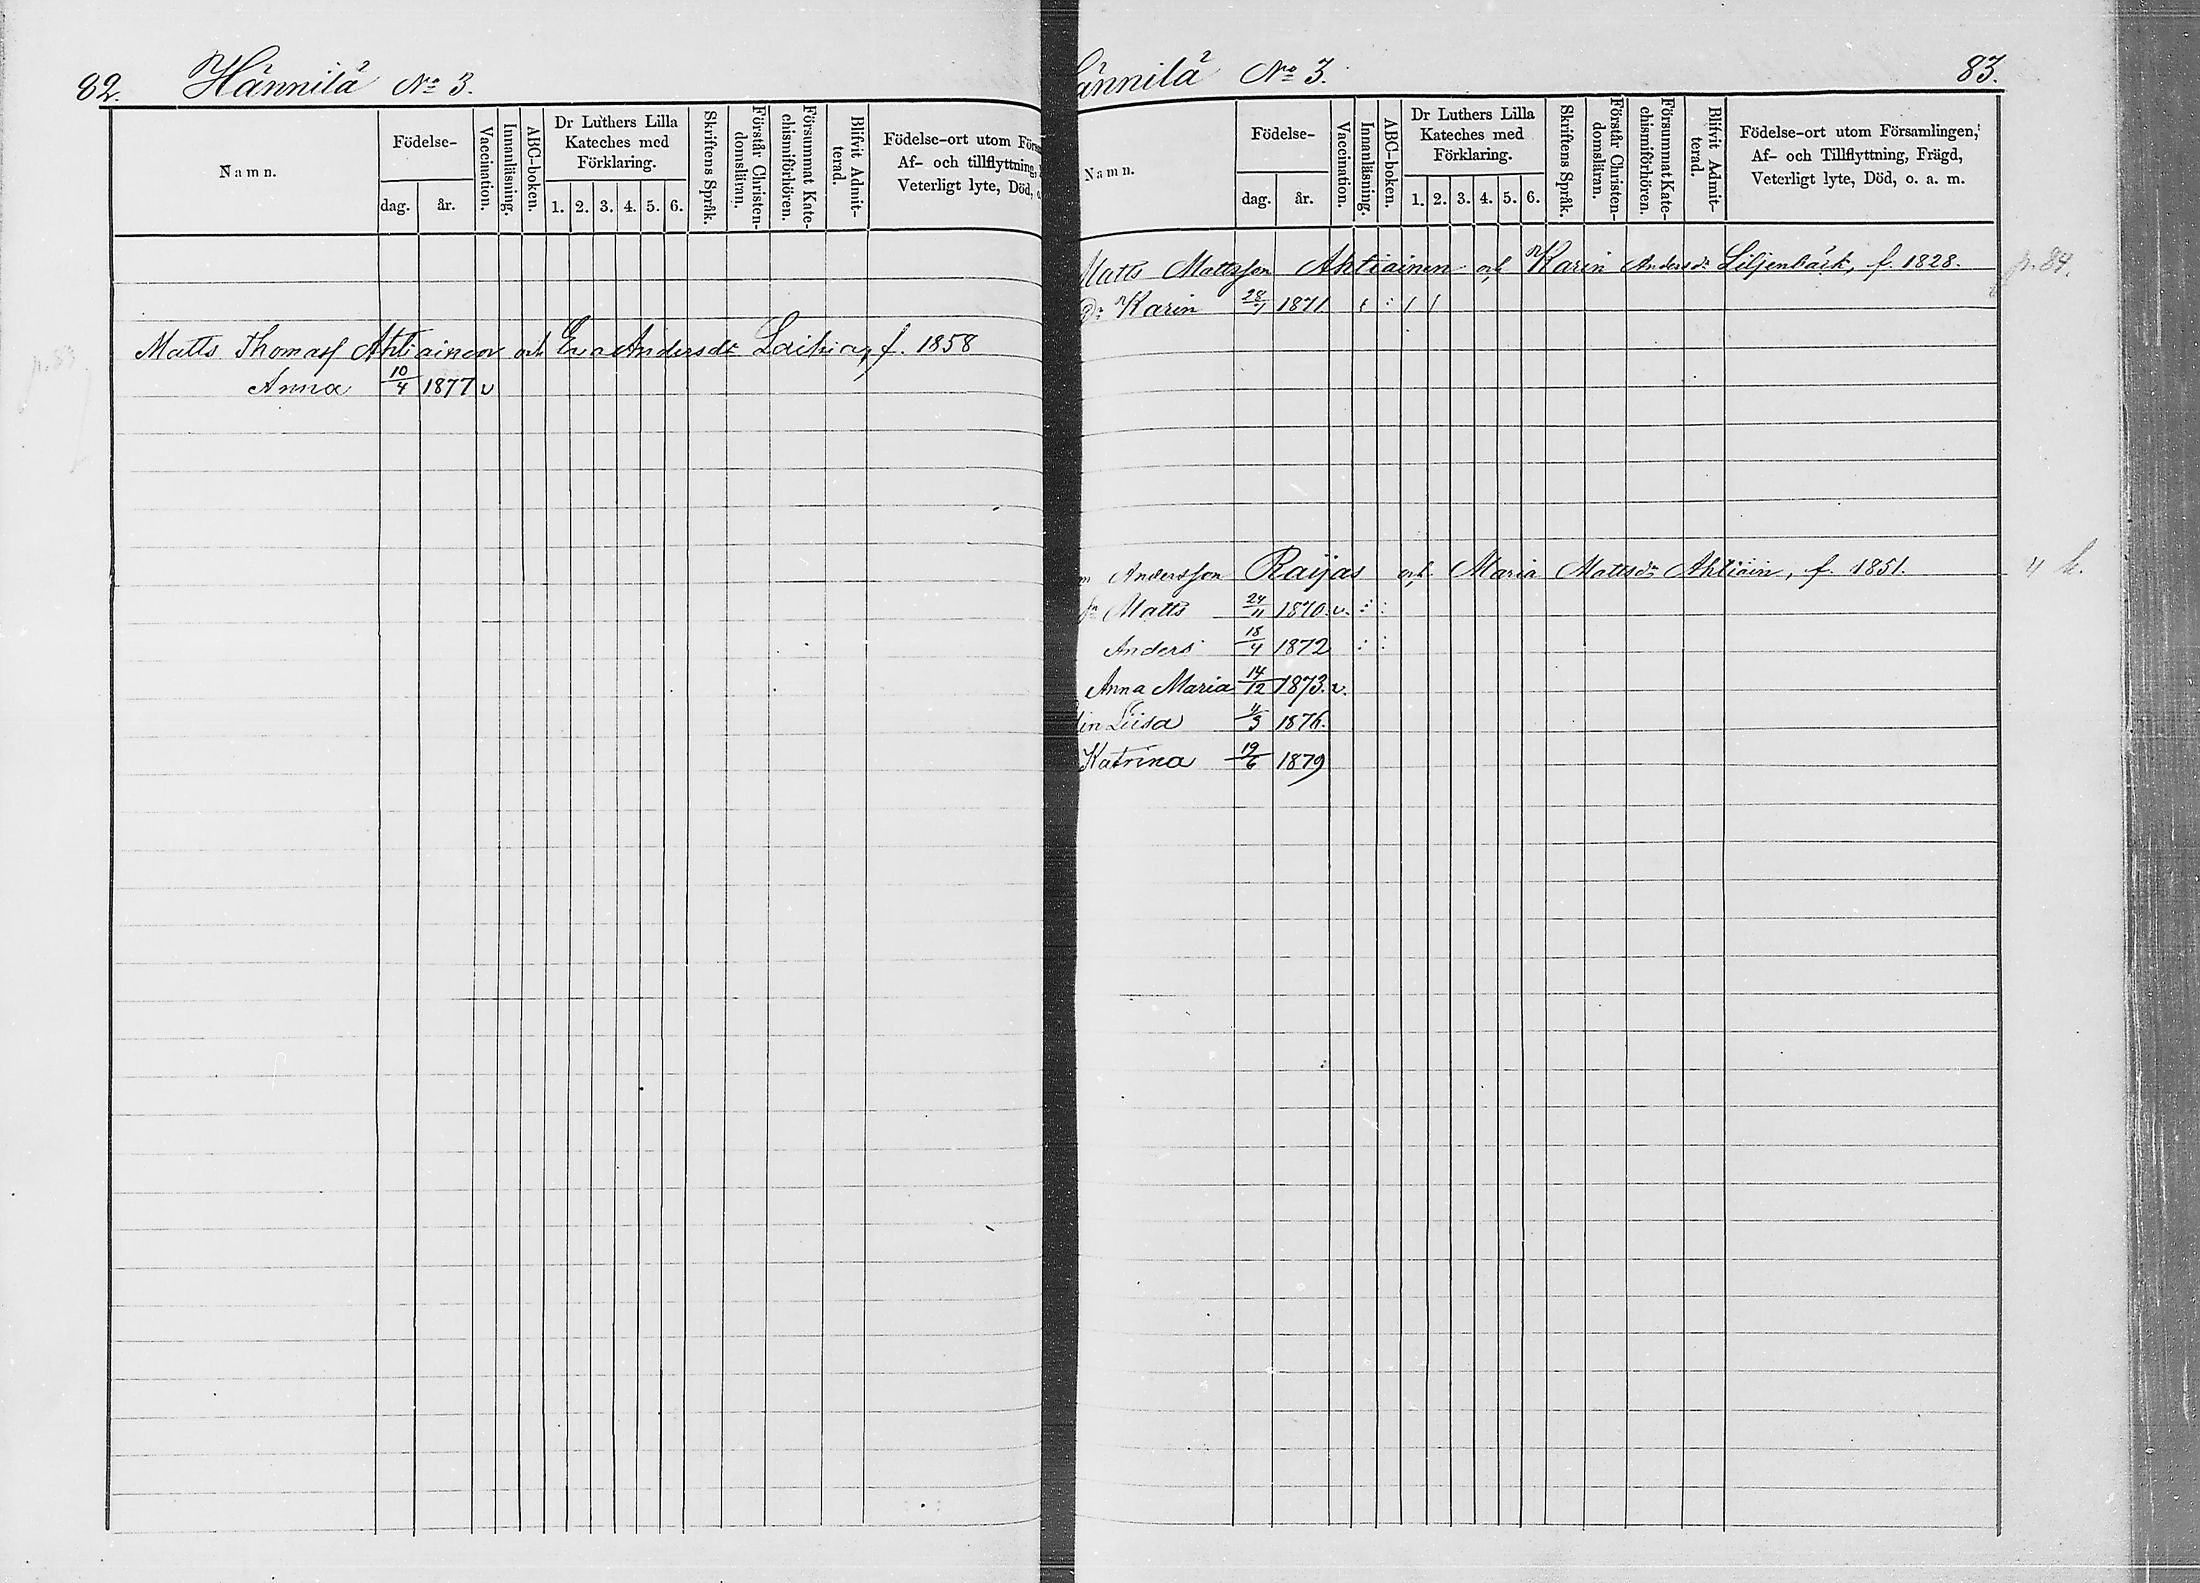 82. Hännilä No 3.
Namn.
Födelse-
dag.
år.
Vaccination.
Innanläsning.
ABC-boken.
Dr Luthers Lilla
Kateches med
Förklaring.
1. 2. 3. 4. 5. 6.
Skriftens Språk.
Förstår Christen-
domsläran.
Försummat Kate-
chismiförhören.
Blifvit Admit-
terad.
Födelse-ort utom Förs
Af- och tillflyttning,
Veterligt lyte, Död,
Matts Thomass Ahtiainen och Eva Andersdr f. 1858
Anna 10/4 1877 v
ännilä No 3. 83.
Namn.
Födelse-
dag.
år.
Vaccination.
Innanläsning.
ABC-boken.
Dr Luthers Lilla
Kateches med
Förklaring.
1. 2. 3. 4. 5. 6.
Skriftens Språk.
Förstår Christen-
domsläran.
Försummat Kate-
chismiförhören.
Blifvit Admit-
terad.
Födelse-ort utom Församlingen,
Af- och Tillflyttning, Frägd,
Veterligt lyte, Död, o. a. m.
Matts Mattsson Ahtiainen och Karin Andersdr Liljenbäck, f. 1828. p. 84.
Dr Karin 28/1 1871
Andersson Raijas och Maria Mattsdr Ahtiain, f. 1851.
Matts 24/11 1870. v.
Anders 18/4 1872
Anna Maria 14/12 1873. v.
lin Liisa 1876.
Katrina 19/6 1879